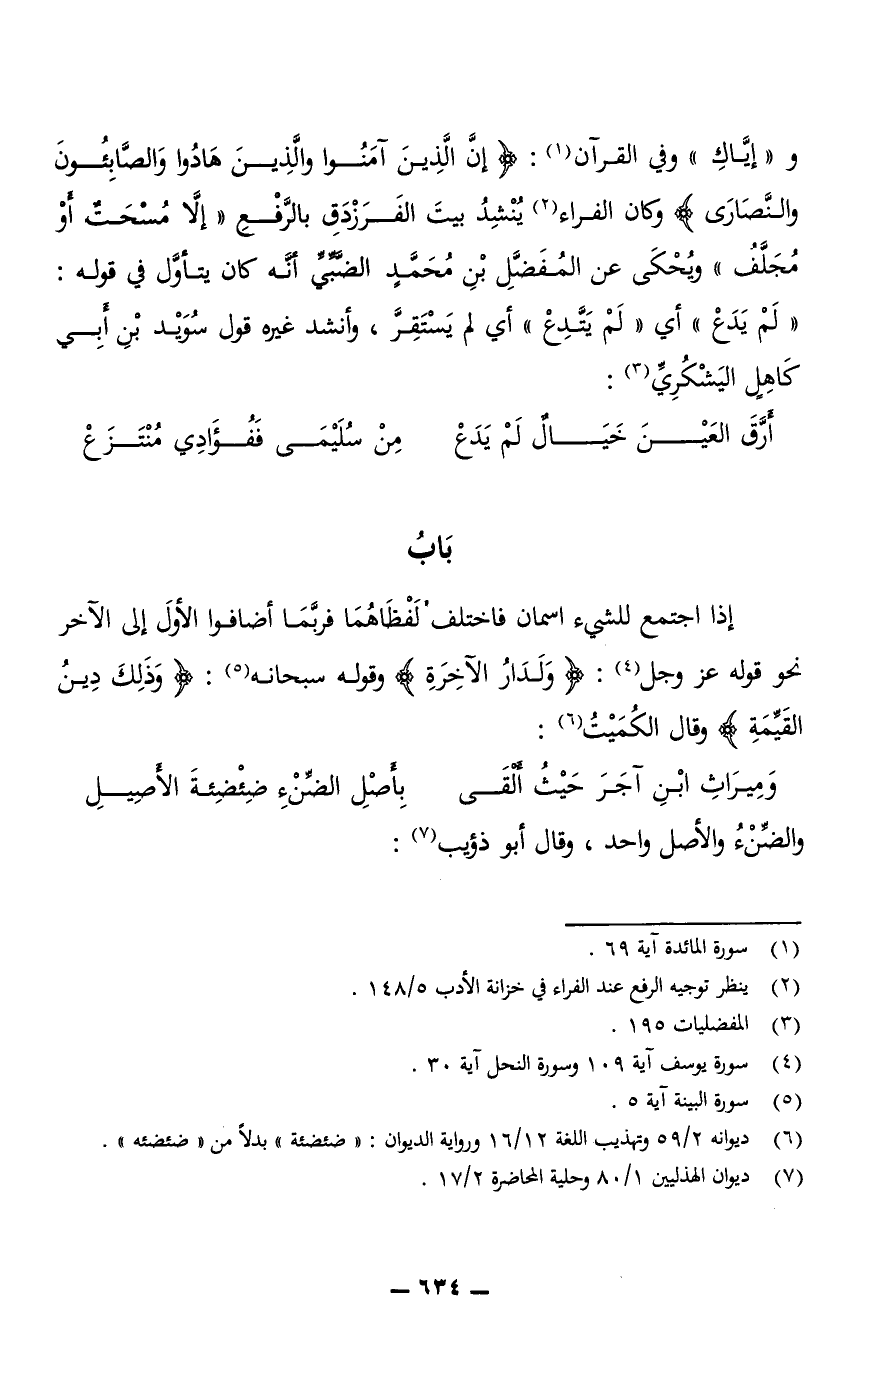 و « إيَّاكِ » وفي القرآن(١) : ﴿ إنَّ الَّذِينَ آمَنُوا والَّذِينَ هَادُوا وَالصَّابِئُونَ
والنَّصَارَى ﴾ وكان الفراء(٢) يُنْشِدُ بيتَ الفَرَزْدَقِ بالرَّفْعِ « إلَّا مُسْحَتٌ أَوْ
مُجَلَّفُ » ويُحْكَى عن المُفَضَّلِ بْنِ مُحَمَّدٍ الضَّبِّيِّ أنَّه كان يتأوَّل في قوله :
« لَمْ يَدَعْ » أي « لَمْ يَتَّدِعْ » أي لم يَسْتَقِرَّ ، وأنشد غيره قول سُوَيْد بْنِ أَبِي
كَاهِلٍ اليَشْكُرِيِّ(٣) :
أَرَّقَ العَيْنَ خَيَالٌ لَمْ يَدَعْ مِنْ سُلَيْمَى فَفُؤَادِي مُنْتَزَعْ
بَابُ
إذا اجتمع للشيء اسمان فاختلف لَفْظَاهُمَا فربَّمَا أضافوا الأولَ إلى الآخر
نحو قوله عز وجل(٤) : ﴿ وَلَدَارُ الآخِرَةِ ﴾ وقوله سبحانه(٥) : ﴿ وَذَلِكَ دِينُ
القَيِّمَةِ ﴾ وقال الكُمَيْتُ(٦) :
وَمِيرَاثِ ابْنِ آجَرَ حَيْثُ أَلْقَى بِأَصْلِ الضِّنْءِ ضِئْضِئةَ الأَصِيلِ
والضِّنْءُ والأصل واحد ، وقال أبو ذؤيب(٧) :
(١) سورة المائدة آية ٦٩ .
(٢) ينظر توجيه الرفع عند الفراء في خزانة الأدب ١٤٨/٥ .
(٣) المفضليات ١٩٥ .
(٤) سورة يوسف آية ١٠٩ وسورة النحل آية ٣٠ .
(٥) سورة البينة آية ٥ .
(٦) ديوانه ٥٩/٢ وتهذيب اللغة ١٦/١٢ ورواية الديوان : « ضئضئة » بدلاً من « ضئضئه » .
(٧) ديوان الهذليين ٨٠/١ وحلية المحاضرة ١٧/٢ .
– ٦٣٤ –